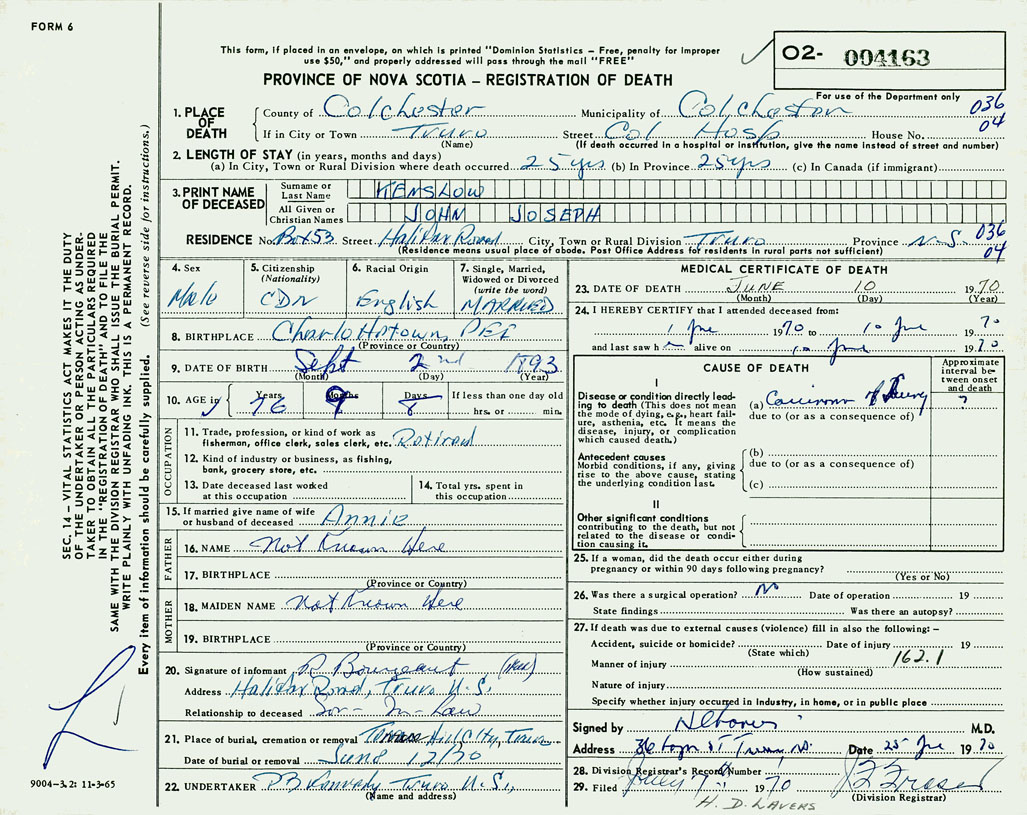 FORM 6
This form, if placed in an envelope, on which is printed "Dominion Statistics – Free, penalty for improper
use $50," and properly addressed will pass through the mail "FREE"
PROVINCE OF NOVA SCOTIA – REGISTRATION OF DEATH
O2- 004163
For use of the Department only
036
04
1. PLACE OF DEATH County of Colchester Municipality of Colchester
If in City or Town Truro Street Col Hosp House No.
(Name) (If death occurred in a hospital or institution, give the name instead of street and number)
2. LENGTH OF STAY (in years, months and days)
(a) In City, Town or Rural Division where death occurred 25 yrs (b) In Province 25 yrs (c) In Canada (if immigrant)
3. PRINT NAME OF DECEASED
Surname or Last Name KENSLOW
All Given or Christian Names JOHN JOSEPH
036
04
RESIDENCE No. Box 53 Street Halifax Road City, Town or Rural Division Truro Province N.S.
(Residence means usual place of abode. Post Office Address for residents in rural parts not sufficient)
4. Sex Male
5. Citizenship (Nationality) CDN
6. Racial Origin English
7. Single, Married, Widowed or Divorced (write the word) MARRIED
8. BIRTHPLACE Charlottetown, PEI
(Province or Country)
9. DATE OF BIRTH Sept 2nd 1893
(Month) (Day) (Year)
10. AGE in Years 76 Months 9 Days 8 If less than one day old
hrs. or min.
OCCUPATION
11. Trade, profession, or kind of work as
fisherman, office clerk, sales clerk, etc. Retired
12. Kind of industry or business, as fishing,
bank, grocery store, etc.
13. Date deceased last worked
at this occupation
14. Total yrs. spent in
this occupation
15. If married give name of wife
or husband of deceased Annie
FATHER
16. NAME Not Known Here
17. BIRTHPLACE
(Province or Country)
MOTHER
18. MAIDEN NAME Not Known Here
19. BIRTHPLACE
(Province or Country)
20. Signature of informant
Address Halifax Road, Truro N.S.
Relationship to deceased Son-In-Law
21. Place of burial, cremation or removal Hill City, Truro
Date of burial or removal June 12/70
22. UNDERTAKER Truro N.S.
(Name and address)
MEDICAL CERTIFICATE OF DEATH
23. DATE OF DEATH JUNE 10 1970
(Month) (Day) (Year)
24. I HEREBY CERTIFY that I attended deceased from:
1 June 1970 to 10 June 1970
and last saw h alive on June 1970
CAUSE OF DEATH
Approximate interval between onset and death
I
Disease or condition directly leading to death (This does not mean
the mode of dying, e.g., heart failure, asthenia, etc. It means the
disease, injury, or complication
which caused death.)
(a) Carcinoma of lung ?
due to (or as a consequence of)
Antecedent causes
Morbid conditions, if any, giving
rise to the above cause, stating
the underlying condition last.
(b)
due to (or as a consequence of)
(c)
II
Other significant conditions
contributing to the death, but not
related to the disease or condition causing it.
25. If a woman, did the death occur either during
pregnancy or within 90 days following pregnancy?
(Yes or No)
26. Was there a surgical operation? No Date of operation 19
State findings Was there an autopsy?
27. If death was due to external causes (violence) fill in also the following: –
Accident, suicide or homicide? Date of injury 19
(State which) 162.1
Manner of injury
(How sustained)
Nature of injury
Specify whether injury occurred in Industry, in home, or in public place
Signed by M.D.
Address Date 25 June 1970
28. Division Registrar's Record Number
29. Filed July 1970
(Division Registrar)
H. D. LAVERS
SEC. 14 – VITAL STATISTICS ACT MAKES IT THE DUTY
OF THE UNDERTAKER OR PERSON ACTING AS UNDER-
TAKER TO OBTAIN ALL THE PARTICULARS REQUIRED
IN THE "REGISTRATION OF DEATH" AND TO FILE THE
SAME WITH THE DIVISION REGISTRAR WHO SHALL ISSUE THE BURIAL PERMIT.
WRITE PLAINLY WITH UNFADING INK. THIS IS A PERMANENT RECORD.
Every item of information should be carefully supplied. (See reverse side for instructions.)
9004–3.2: 11-3-65